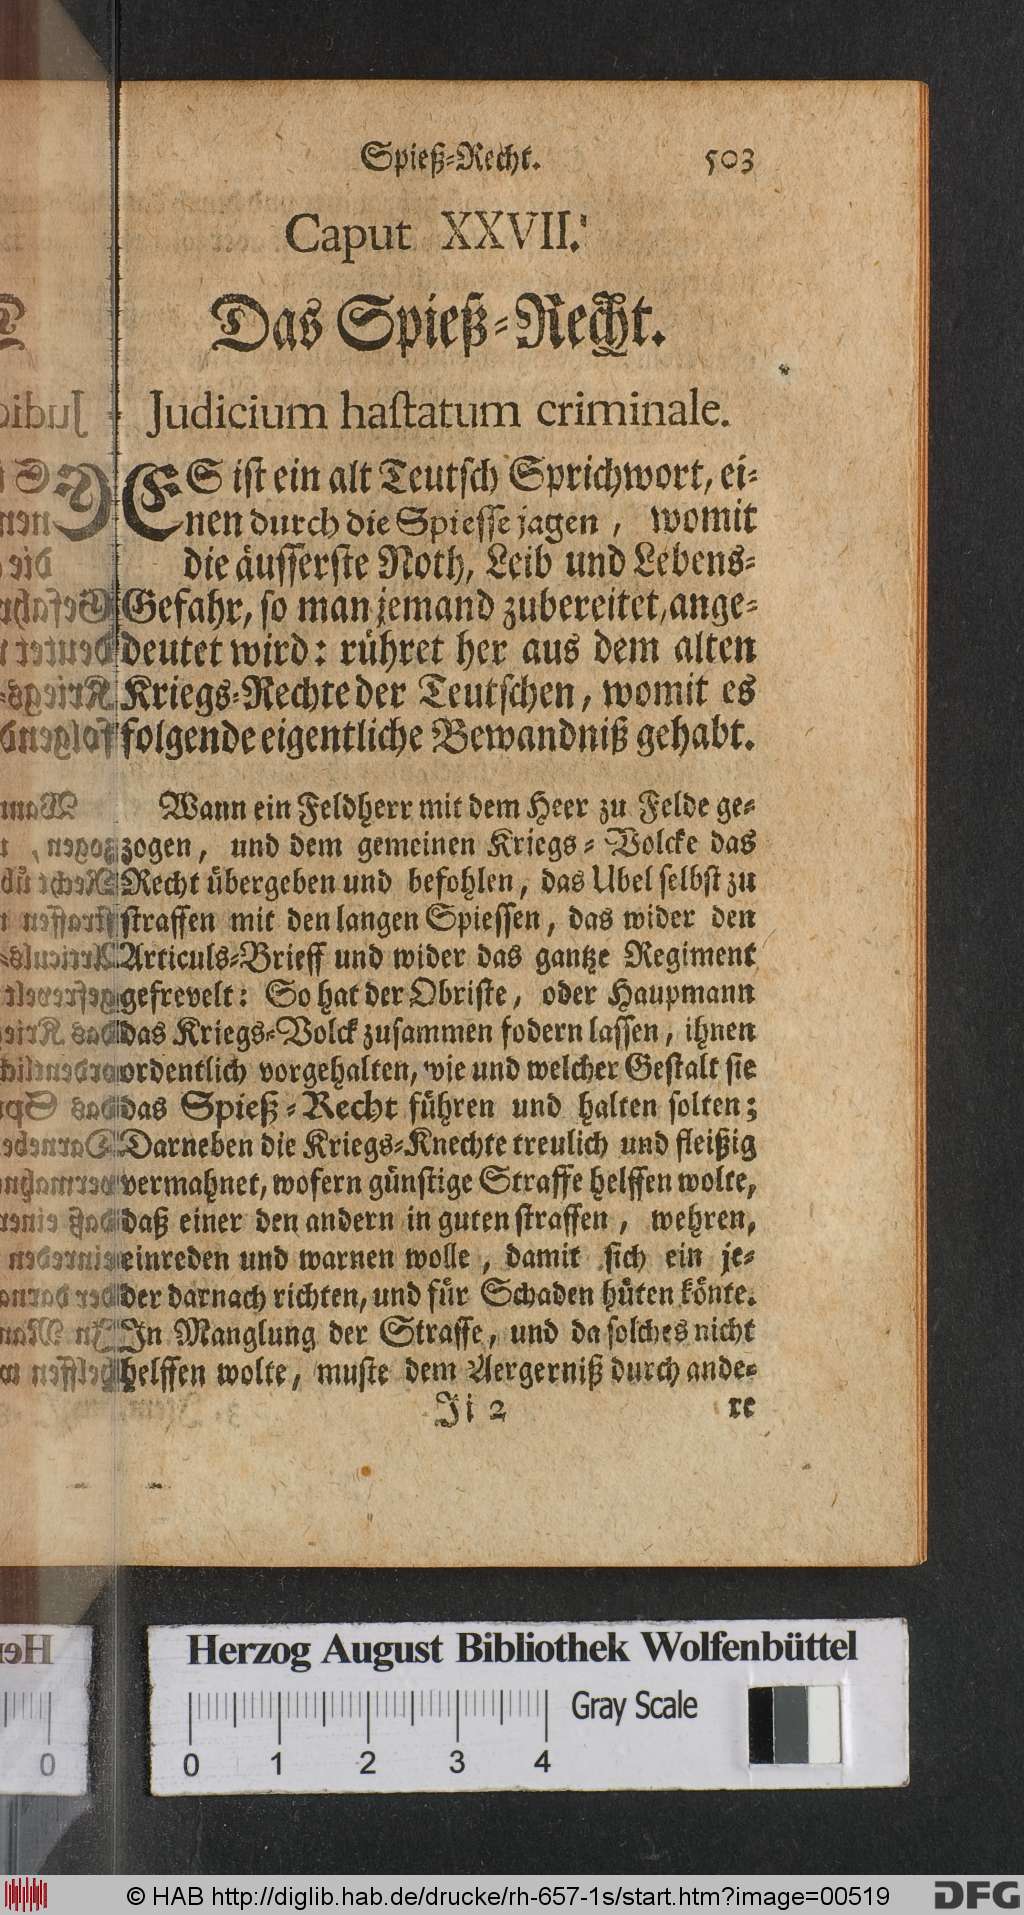 Spieß-Recht. 503
Caput XXVII.
Das Spieß-Recht.
Judicium hastatum criminale.
ES ist ein alt Teutsch Sprichwort, ei-
nen durch die Spiesse jagen, womit
die äusserste Noth, Leib und Lebens-
Gefahr, so man jemand zubereitet, ange-
deutet wird: rühret her aus dem alten
Kriegs-Rechte der Teutschen, womit es
folgende eigentliche Bewandniß gehabt.
Wann ein Feldherr mit dem Heer zu Felde ge-
zogen, und dem gemeinen Kriegs-Volcke das
Recht übergeben und befohlen, das Ubel selbst zu
straffen mit den langen Spiessen, das wider den
Articuls-Brieff und wider das gantze Regiment
gefrevelt: So hat der Obriste, oder Haupmann
das Kriegs-Volck zusammen fodern lassen, ihnen
ordentlich vorgehalten, wie und welcher Gestalt sie
das Spieß-Recht führen und halten solten;
Darneben die Kriegs-Knechte treulich und fleißig
vermahnet, wofern günstige Straffe helffen wolte,
daß einer den andern in guten straffen, wehren,
einreden und warnen wolle, damit sich ein je-
der darnach richten, und für Schaden hüten könte.
In Manglung der Straffe, und da solches nicht
helffen wolte, muste dem Aergerniß durch ande-
Ji 2 re
Herzog August Bibliothek Wolfenbüttel
Gray Scale
0 1 2 3 4
© HAB http://diglib.hab.de/drucke/rh-657-1s/start.htm?image=00519
DFG